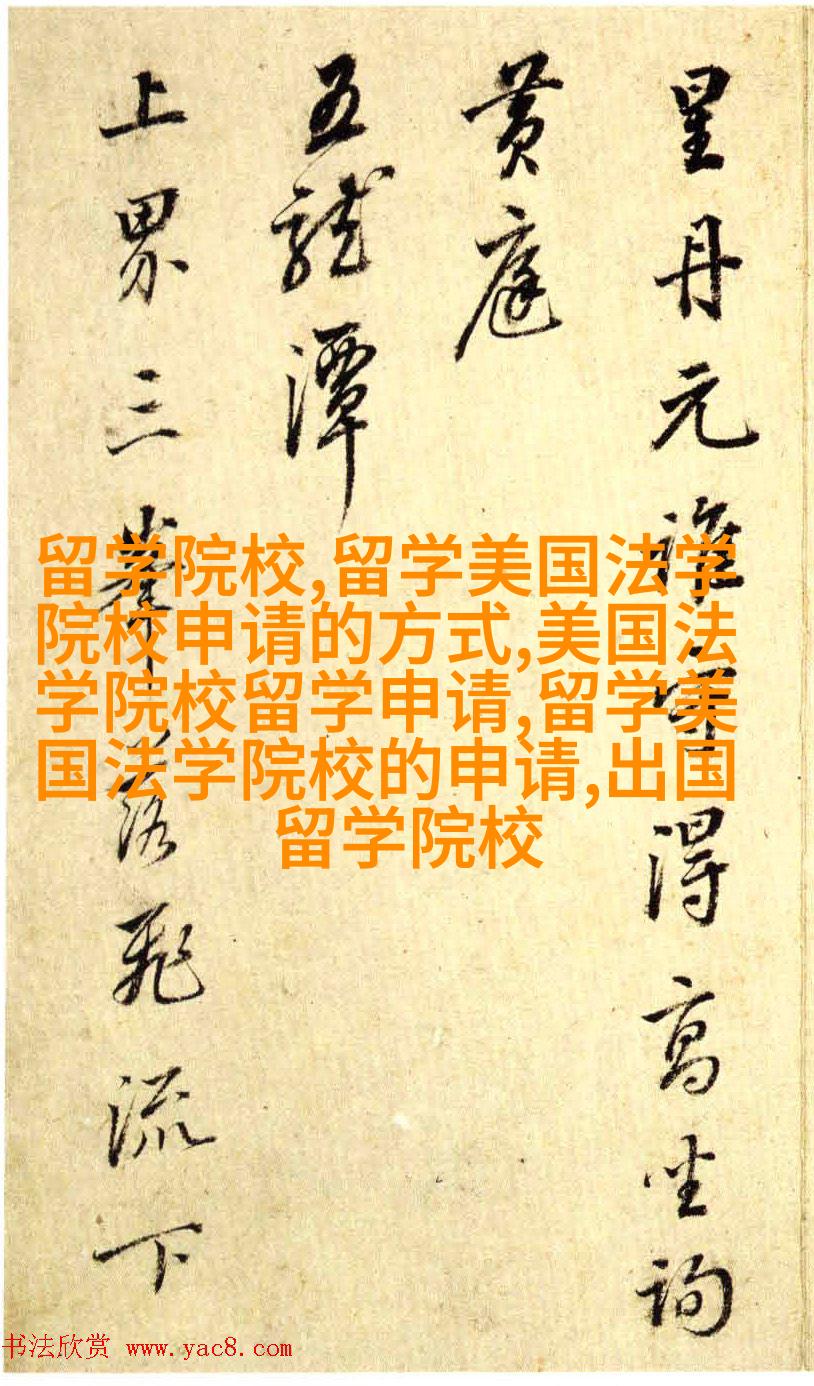 星丹元誰得高坐詢
黄庭
五龍潭
上界三峯落飛流下
留学院校,留学美国法学
院校申请的方式,美国法
学院校留学申请,留学美
国法学院校的申请,出国
留学院校
书法欣赏 www.yac8.com